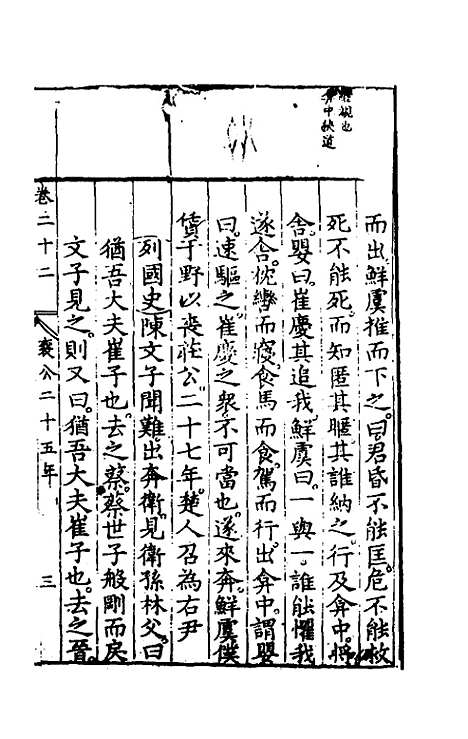 弇中狹道
而出鮮虞推而下之曰君昏不能匡危不能救
死不能死而知匿其暱其誰納之行及弇中將
舍嬰曰崔慶其追我鮮虞曰一與一誰能懼我
遂舍枕轡而寢食馬而食駕而行出弇中謂嬰
曰速驅之崔慶之衆不可當也遂來奔鮮虞僕
賃于野以喪莊公二十七年楚人召為右尹
列國史陳文子聞難出奔衛見衛孫林父曰
猶吾大夫崔子也去之蔡蔡世子般剛而戾
文子見之則又曰猶吾大夫崔子也去之晉
卷二十二
襄公二十五年
三